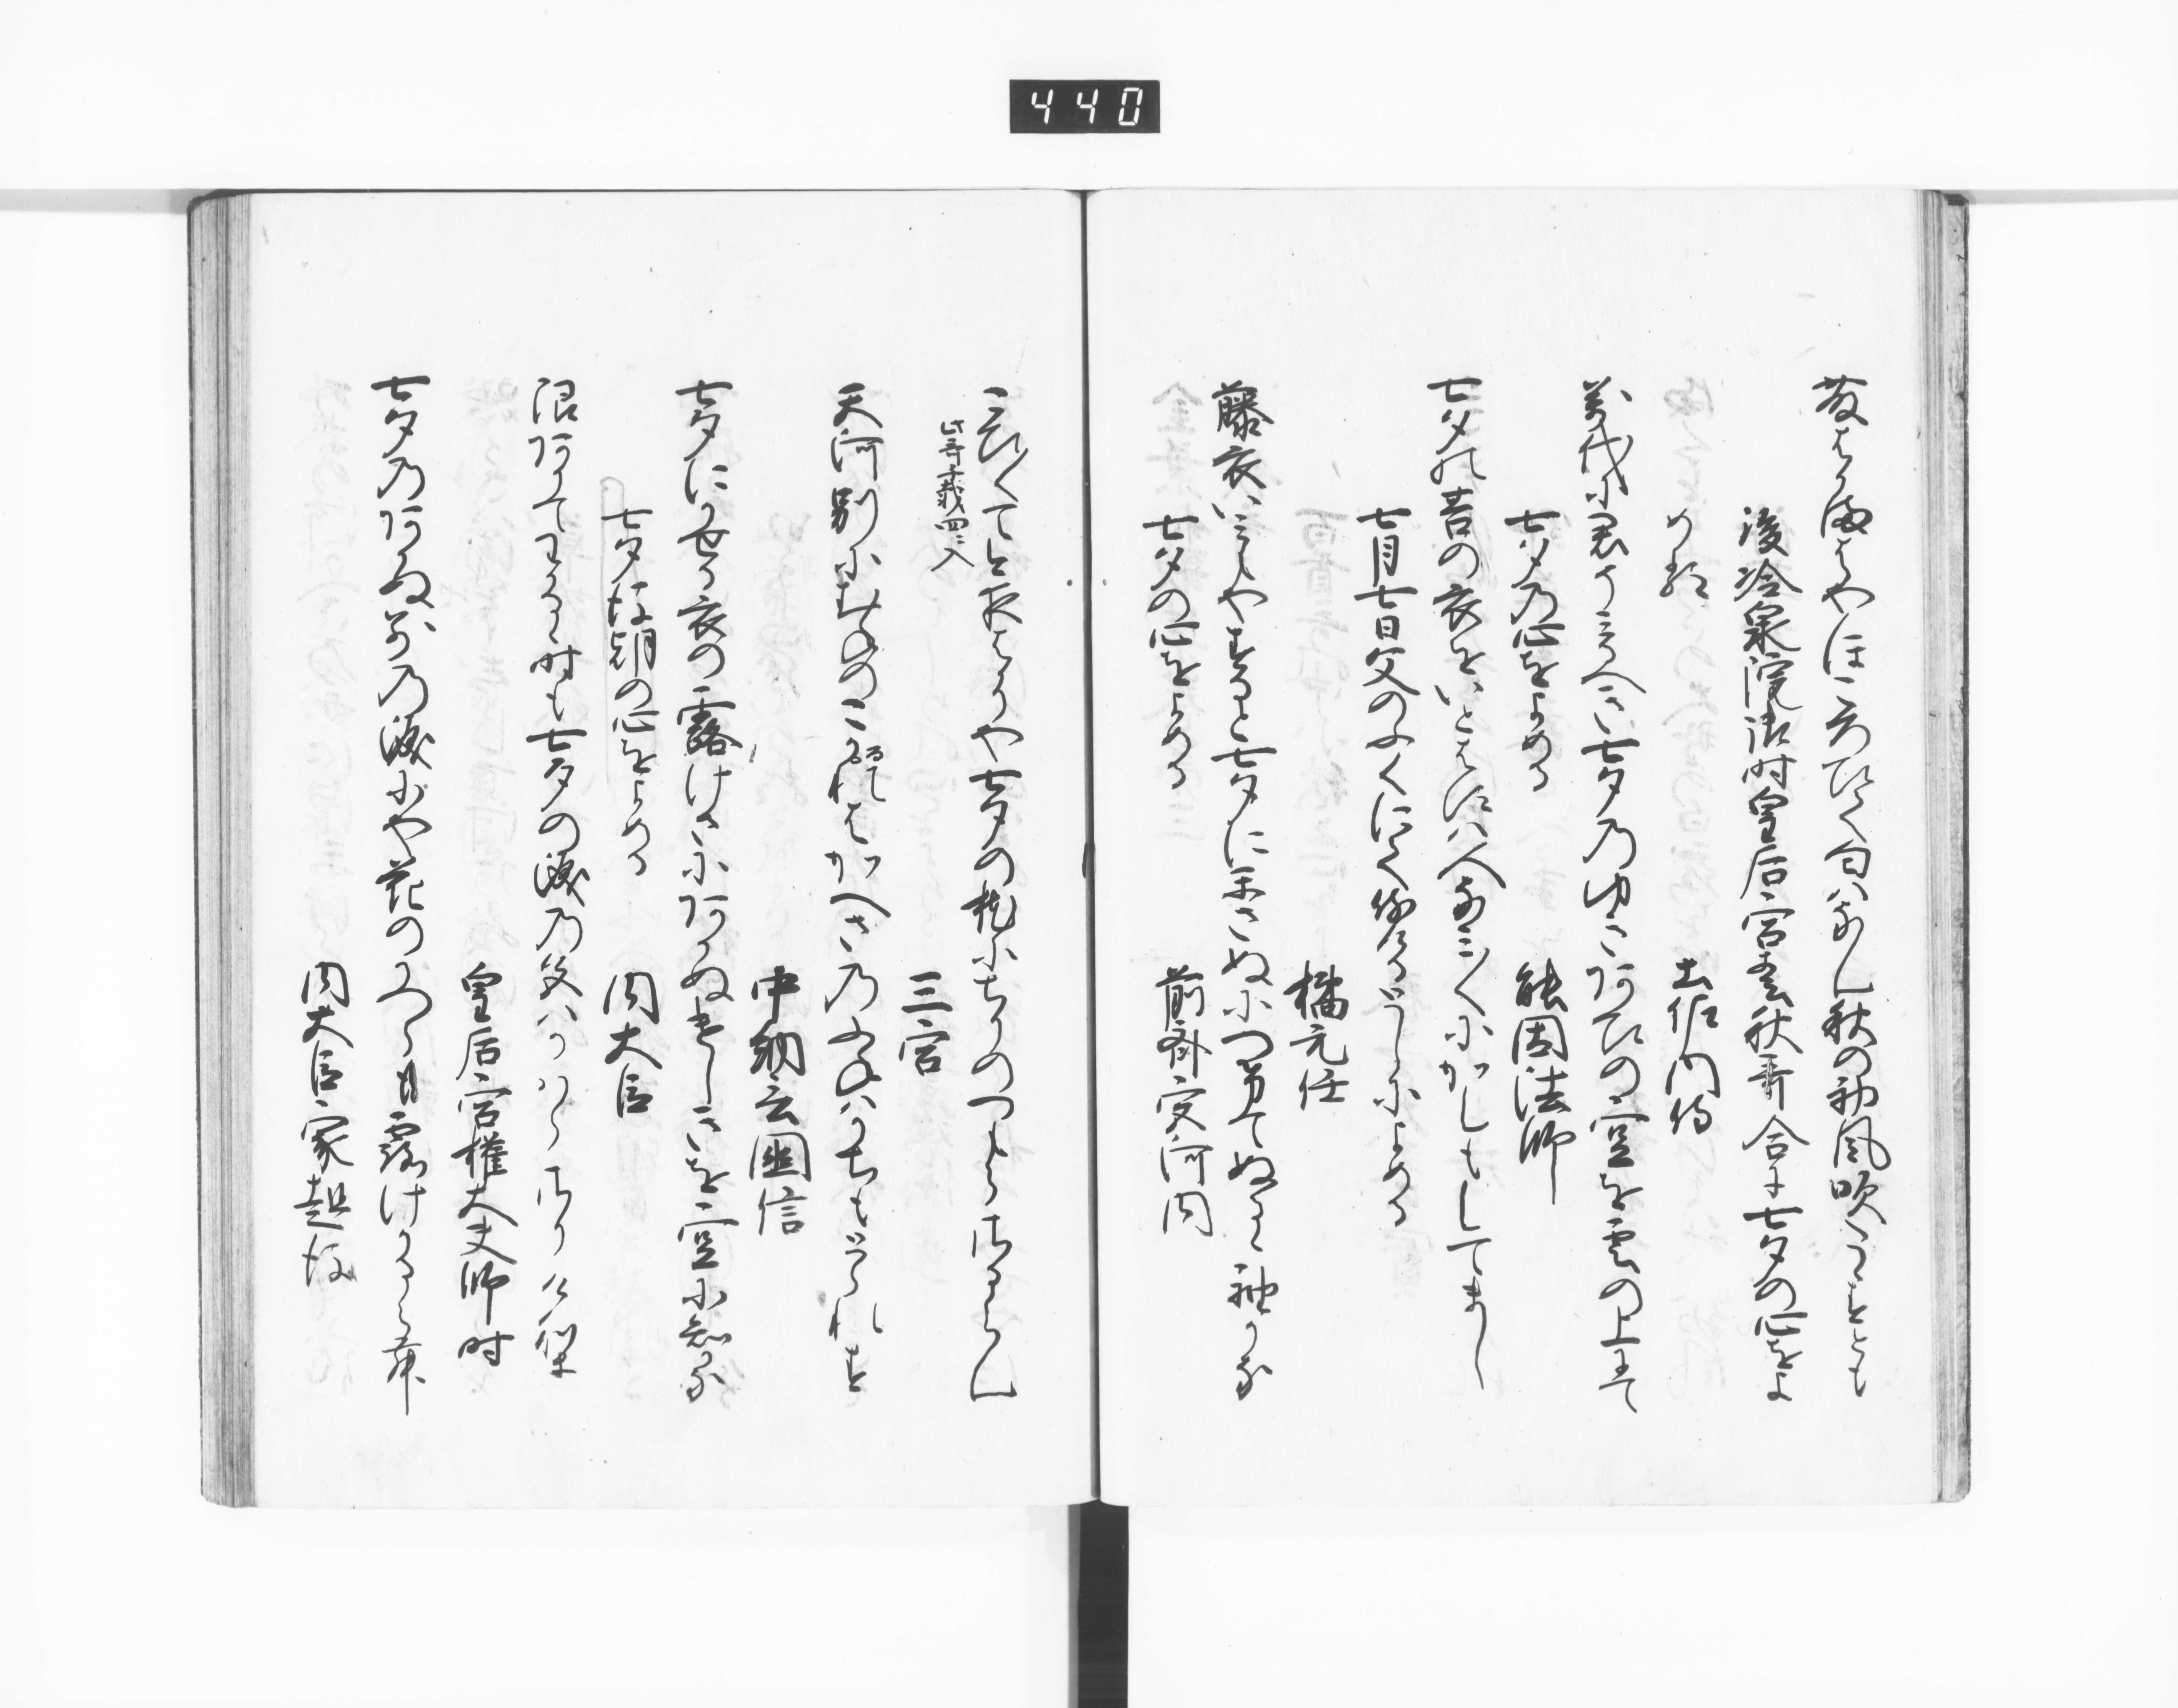 藤はかまはやほころひて匂はなん秋の初風吹たゝすとも
後冷泉院御時皇后宮春秋哥合に七夕の心をよ
める　土佐内侍
万代に君そみるへき七夕乃ゆきあひの空を雲の上にて
七夕乃心をよめる　能因法師
七夕の苔の衣をいとはすは人なみ〳〵にかしもしてまし
七月七日父のふくにて侍けるとしによめる
橘元任
藤衣いみもやすると七夕にかさぬにつけてぬるゝ袖かな
七夕の心をよめる　前斎宮河内
こひ〳〵てこよひはかりや七夕の枕にちりのつもらさるらん
此哥千載四ニ入　三宮
天河別にむねのこかるれはかへさ乃ふねはかちもとられす
中納言国信
七夕にかせる衣の露けさにあかぬけしきを空に知かな
七夕後朝の心をよめる　内大臣
限ありてわかるゝ時も七夕の涙乃色はかはらさりけり
皇后宮権大夫師時
七夕乃あかぬ別乃涙にや花のかつらも露けかるらん
内大臣家越後